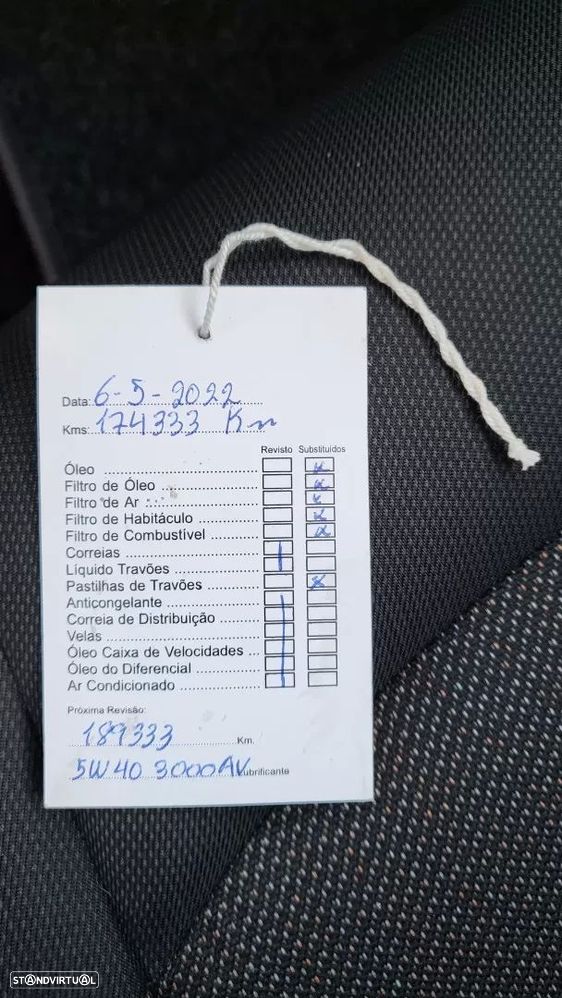 Data: 6-5-2022
Kms: 174333 Km
Revisto Substituídos
Óleo
Filtro de Óleo
Filtro de Ar
Filtro de Habitáculo
Filtro de Combustível
Correias
Líquido Travões
Pastilhas de Travões
Anticongelante
Correia de Distribuição
Velas
Óleo Caixa de Velocidades
Óleo do Diferencial
Ar Condicionado
Próxima Revisão:
189333 Km.
5W40 3000AV Lubrificante
STANDVIRTUAL